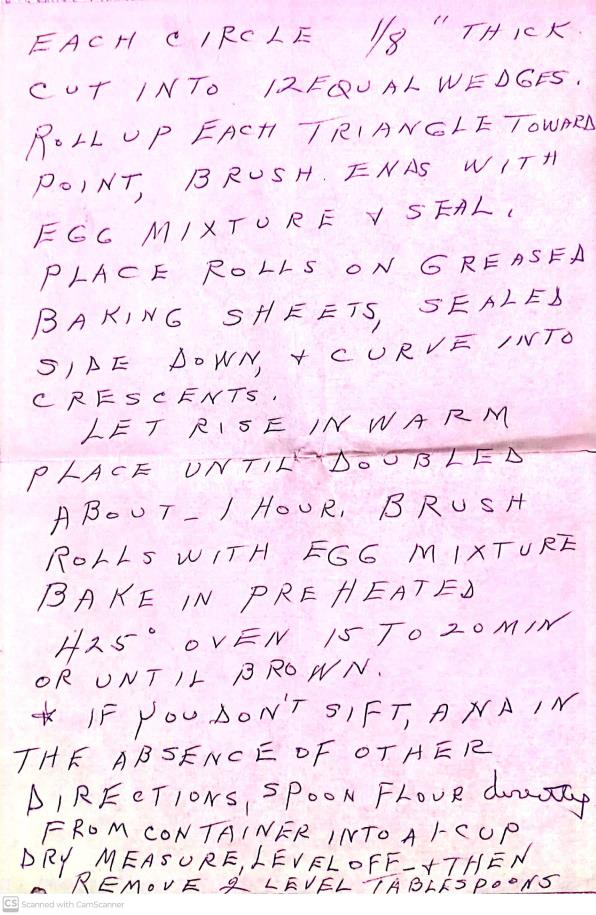 EACH CIRCLE 1/8" THICK
CUT INTO 12 EQUAL WEDGES.
ROLL UP EACH TRIANGLE TOWARD
POINT, BRUSH. ENDS WITH
EGG MIXTURE & SEAL.
PLACE ROLLS ON GREASED
BAKING SHEETS, SEALED
SIDE DOWN, & CURVE INTO
CRESCENTS.
LET RISE IN WARM
PLACE UNTIL DOUBLED
ABOUT - 1 HOUR. BRUSH
ROLLS WITH EGG MIXTURE
BAKE IN PREHEATED
425° OVEN 15 TO 20 MIN
OR UNTIL BROWN.
* IF YOU DON'T SIFT, AND IN
THE ABSENCE OF OTHER
DIRECTIONS, SPOON FLOUR directly
FROM CONTAINER INTO A 1-CUP
DRY MEASURE, LEVEL OFF - & THEN
REMOVE 2 LEVEL TABLESPOONS
CS Scanned with CamScanner